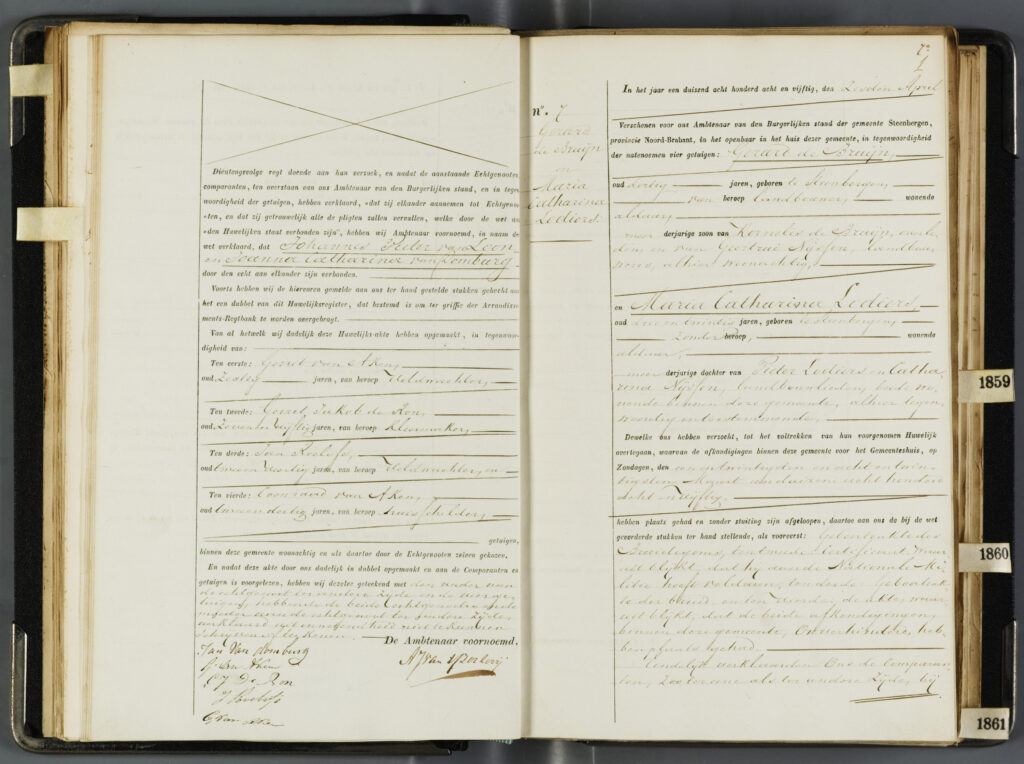 Dientengevolge regt doende aan hun verzoek, en nadat de aanstaande Echtgenooten,
comparanten, ten overstaan van ons Ambtenaar van den Burgerlijken stand, en in tegen
woordigheid der getuigen, hebben verklaard, »dat zij elkander aannemen tot Echtgenoo
»ten, en dat zij getrouwelijk alle de pligten zullen vervullen, welke door de wet aan
»den Huwelijken staat verbonden zijn", hebben wij Ambtenaar voornoemd, in naam der
wet verklaard, dat Johannes Peter van Loon
en Joanna Catharina van Romburg
door den echt aan elkander zijn verbonden.
Voorts hebben wij de hiervoren gemelde aan ons ter hand gestelde stukken gehecht aan
het een dubbel van dit Huwelijksregister, dat bestemd is om ter griffie der Arrondisse
ments-Regtbank te worden overgebragt.
Van al hetwelk wij dadelijk deze Huwelijks-akte hebben opgemaakt, in tegenwoor
digheid van:
Ten eerste: Gerrit van Aken,
oud Zestig jaren, van beroep Veldwachter,
Ten tweede: Gerret Jakob de Ron,
oud Zeven en vijftig jaren, van beroep Kleermaker,
Ten derde: Jan Roelofs,
oud twee en veertig jaren, van beroep Veldwachter, en
Ten vierde: Coenraad van Aken,
oud twee en dertig jaren, van beroep huisschilder,
getuigen,
binnen deze gemeente woonachtig en als daartoe door de Echtgenooten zelven gekozen.
En nadat deze akte door ons dadelijk in dubbel opgemaakt en aan de Comparanten en
getuigen is voorgelezen, hebben wij dezelve geteekend met den vader van
de echtgenoot ter andere zijde en de vier ge
tuigen, hebbende de beide echtgenooten en de
moeder van de echtgenoot ter andere Zijde,
verklaard uit onervarenheid niet te kunnen
schrijven of te kennen.
De Ambtenaar voornoemd,
Jan Van Romburg
G. van Aken
G J De Ron
J Roelofs
C van Aken
7
1
n°. 7
Gerard
de Bruijn
en
Maria
Catharina
In het jaar een duizend acht honderd acht en vijftig, den Zesden April
Verschenen voor ons Ambtenaar van den Burgerlijken stand der gemeente Steenbergen,
provincie Noord-Brabant, in het openbaar in het huis dezer gemeente, in tegenwoordigheid
der natenoemen vier getuigen: Gerard de Bruijn,
oud dertig jaren, geboren te Steenbergen
van beroep landbouwer, wonende
aldaar,
meerderjarige zoon van Kornelis de Bruijn, overle
den en van Geertrui Nijssen, landbou
wers, alhier woonachtig,
en Maria Catharina
oud twee en twintig jaren, geboren te Steenbergen,
zonder beroep, wonende
aldaar,
minderjarige dochter van Peter en Catha
rina Nijssen, landbouwlieden, beide wo
nende binnen deze gemeente, alhier tegen
woordig en toestemmende.
Dewelke ons hebben verzocht, tot het voltrekken van hun voorgenomen Huwelijk
overtegaan, waarvan de afkondigingen binnen deze gemeente voor het Gemeentehuis, op
Zondagen, den een en twintigsten en acht en twin
tigsten Maart een duizend acht honderd
acht en vijftig,
hebben plaats gehad en zonder stuiting zijn afgeloopen, daartoe aan ons de bij de wet
gevorderde stukken ter hand stellende, als vooreerst: Geboorteakte des
Bruidegoms, ten tweede Certificaat waar
uit blijkt, dat hij aan de Nationale Mi
litie heeft voldaan, ten derde: Geboorteak
te der bruid, en ten vierde, de akte, waar
uit blijkt, dat de beide afkondigingen,
binnen deze gemeente, Onverhinderd, heb
ben plaats gehad.
Eindelijk verklaarden Ons de Comparan
ten, Zoo ter eene als ter andere Zijde, bij
1859
1860
1861